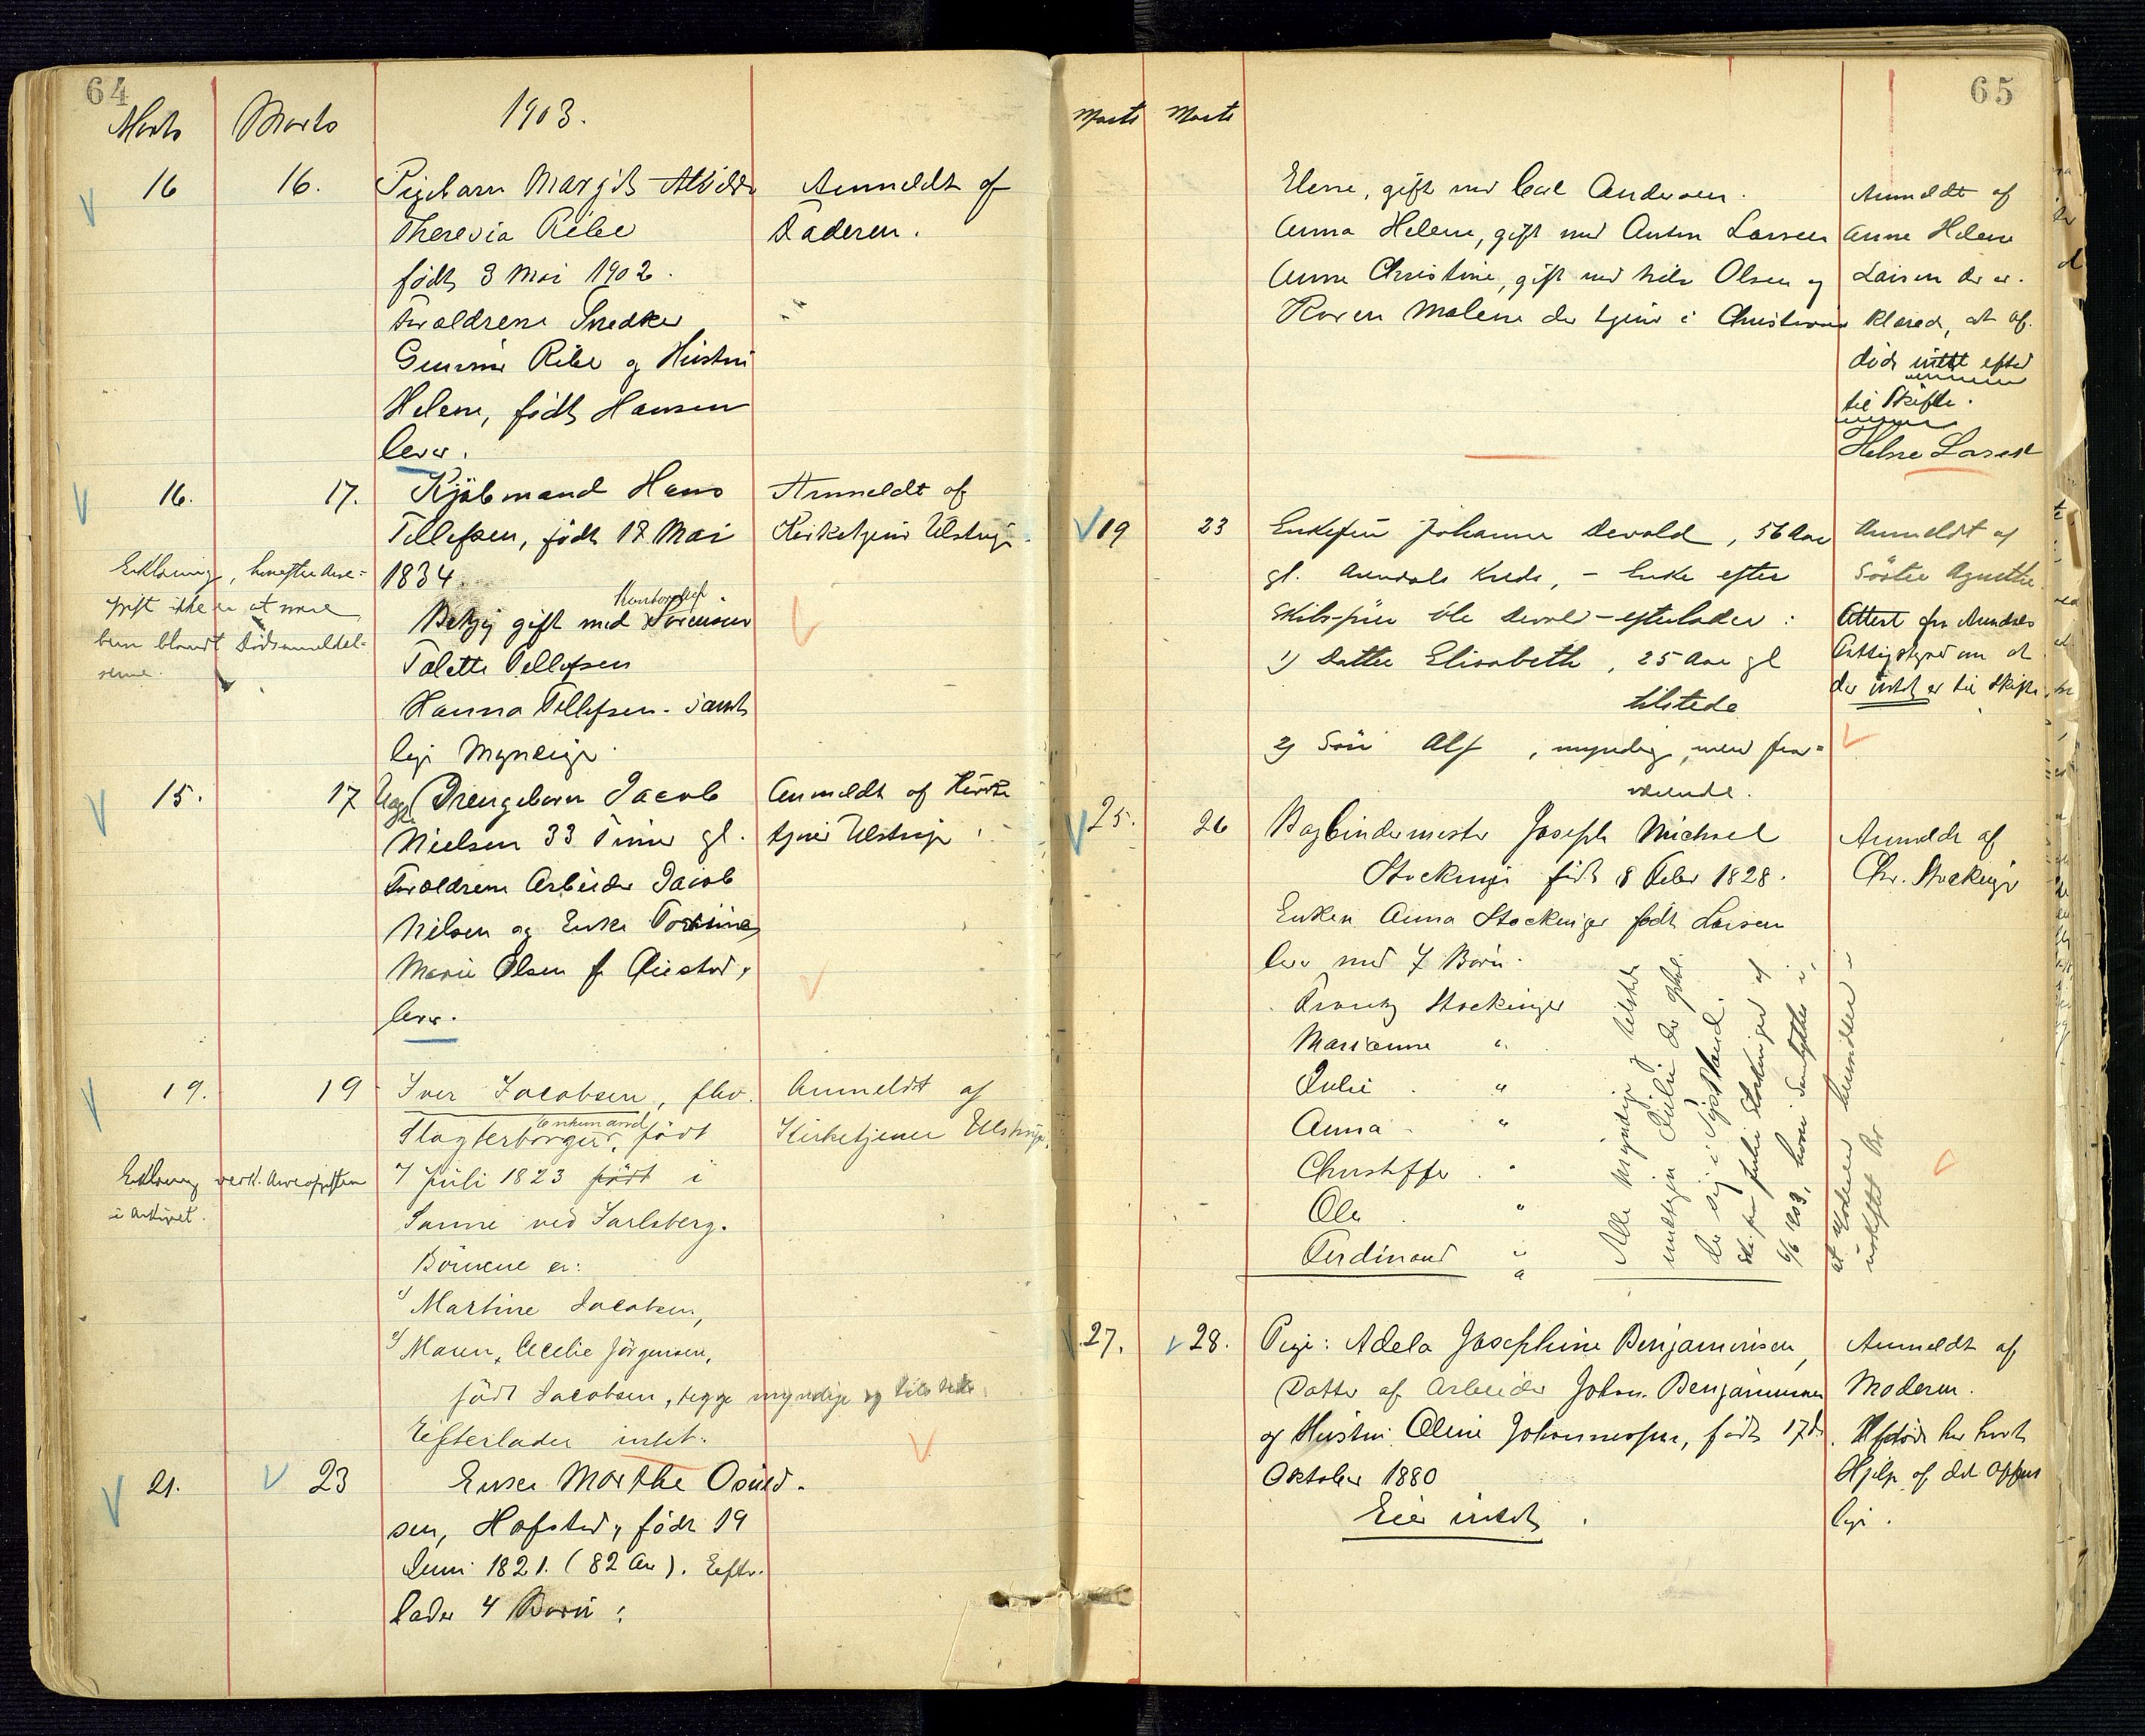 64
Marts Marts 1903.
16 16. Pigebarn Margit Alvilde Anmeldt af
Theresia Ribe Faderen.
født 3 Mai 1902.
Forældrene Snedker
Ribe og Hustru
Helene, født Hansen
lever.
16. 17. Kjøbmand Hans Anmeldt af
Tellefsen, født 17 Mai Kirketjener Ulstrup.
1834.
Erklæring, hvorefter Arve-
gift ikke er at svare
beror blandt Dødsanmeldel-
serne.
Kontorchef
Betzy gift med Sørensen
Tolette Tellefsen
Hanna Tellefsen. samt-
lige Myndige.
15. 17 Uægte Drengebarn Jacob Anmeldt af Kirke
Nielsen 33 Timer gl. tjener Ulstrup.
Forældrene Arbeider Jacob
Nilsen og Enke Torsine
Marie Olsen f.
lever.
19. 19 Iver Jacobsen, fhv. Anmeldt af
Enkemand
Slagterborger, født Kirketjener Ulstrup.
7 Juli 1823 født i
Erklæring vedk. Arveafgiften
i Arkivet.
Sanne ved Jarlsberg.
Børnene er:
1) Martine Jacobsen,
2) Maren Cecilie Jörgensen,
født Jacobsen, begge myndige og tilstede.
Efterlader intet.
21. 23 Enke Marthe Osuld-
sen, Hofsted, født 19
Juni 1821. (82 Aar). Efter-
lader 4 Børn:
65
Marts Marts
Elene, gift med Carl Andersen. Anmeldt af
Anna Helene, gift med Anton Larsen Anne Helene
Anne Christine, gift med Nils Olsen og Larsen der er-
Karen Malene der tjener i Christiania klæred, at af-
døde intet efter
til Skifte.
Helene Larsen
19 23 Enkefru Johanne Devold, 56 Aar Anmeldt af
gl. Arendals Kreds, - Enke efter Søster Agnethe
Skibsfører Ole Devold - efterlader: Attest fra Arendals
1) Datter Elisabeth, 25 Aar gl Fattigstyre om at
tilstede der intet er til Skifte
2) Søn Alf, myndig, men fra-
værende.
25. 26 Bogbindermester Joseph Michael Anmeldt af
Stockinger født 8 Feber 1828. Chr. Stockinger
Enken Anna Stockinger født Larsen
lever med 7 Børn.
Frantz Stockinger
Marianne "
Julie "
Anna "
Christoffer "
Ole "
Ferdinand "
Alle myndige og tilstede
undtagen Julie der
der sig i Tydskland.
Julie Stockinger af
6/6 1903, hvori Samtykke i,
at Moderen hensidder i
uskiftet Bo
27. 28. Pige: Adela Josephine Benjaminsen, Anmeldt af
Datter af Arbeider Johan Benjaminsen Moderen.
og Hustru Oline Johannessen, født 17de Afdøde har havt
Oktober 1880 Hjelp af det Offent
Eier intet. lige.